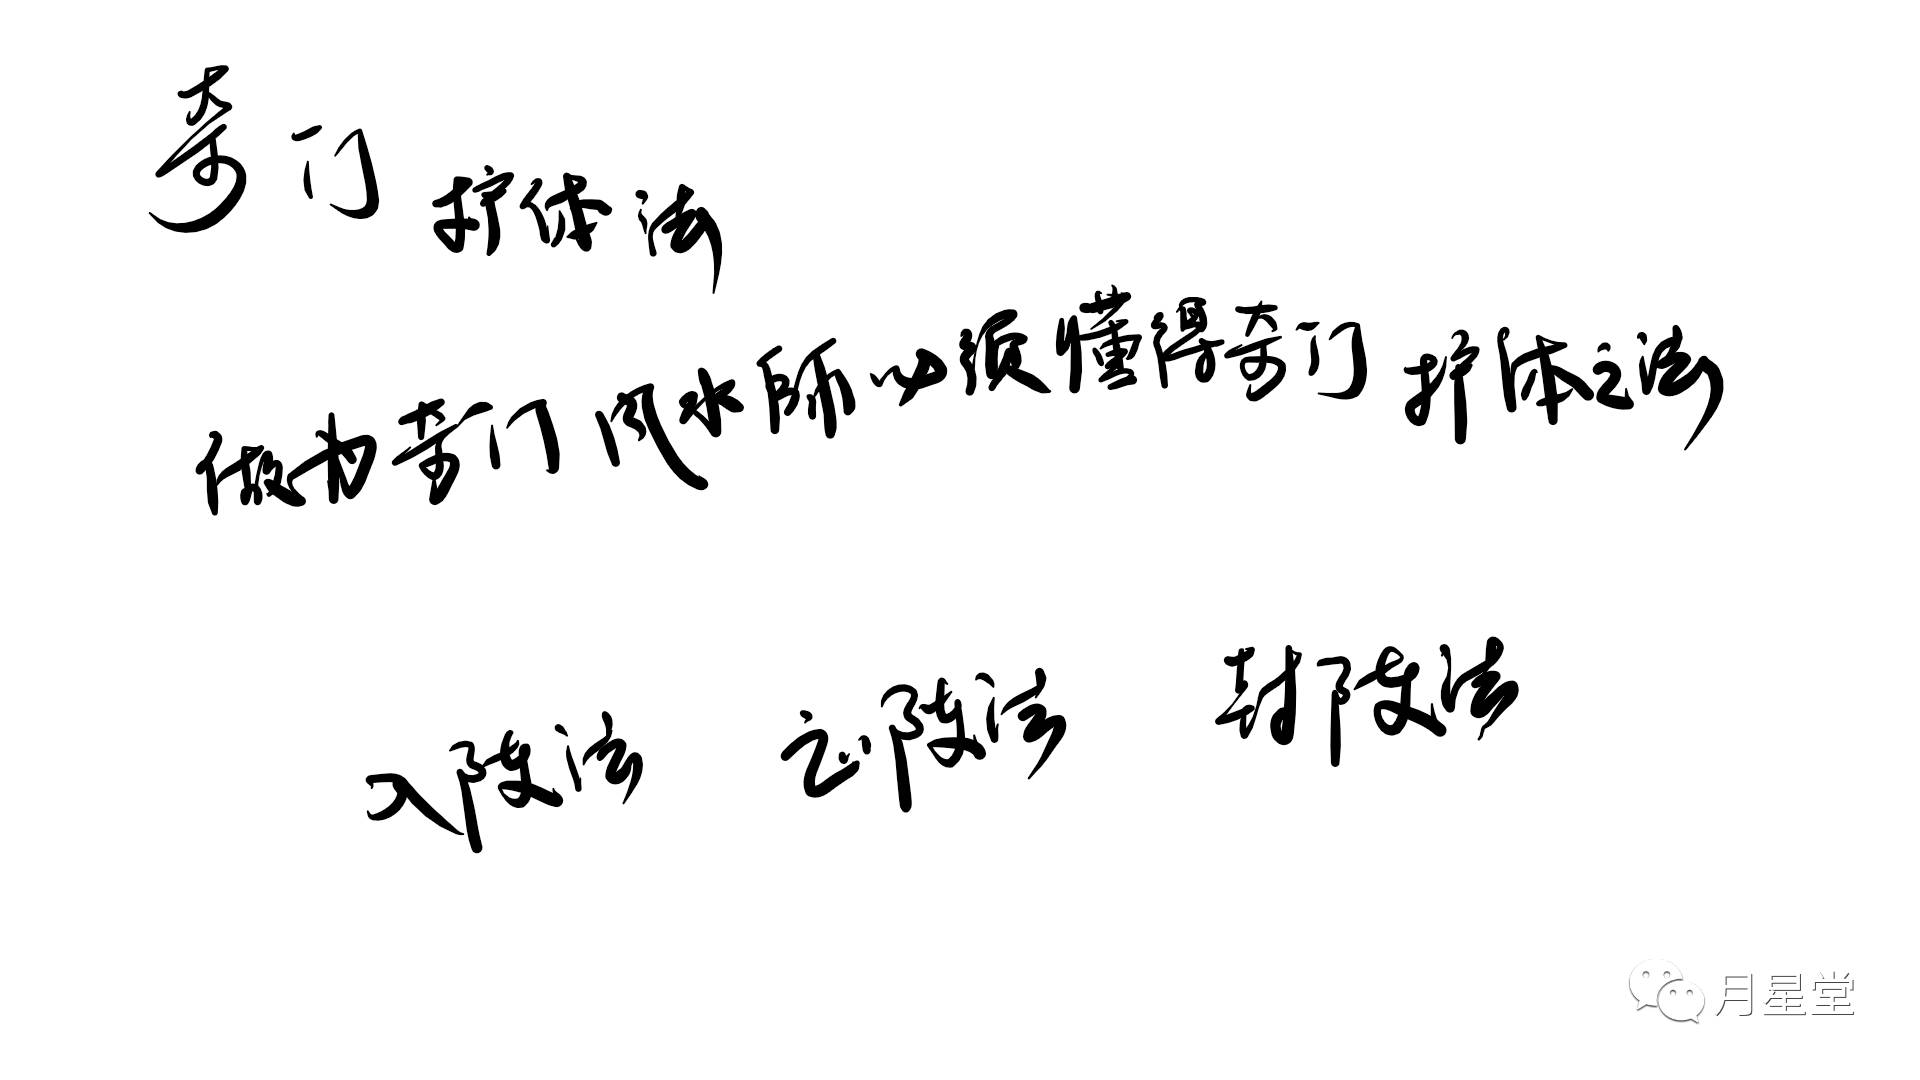 奇门护体法
做为奇门风水師必须懂得奇门护体之法
入阵法 立阵法 封阵法
月星堂